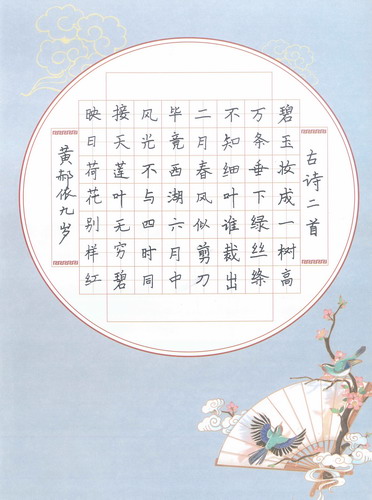 古诗二首
碧玉妆成一树高
万条垂下绿丝绦
不知细叶谁裁出
二月春风似剪刀
毕竟西湖六月中
风光不与四时同
接天莲叶无穷碧
映日荷花别样红
黄郝依九岁